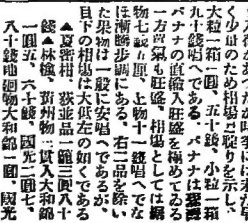 く少量のため相場は聢りを示し、
大粒一箱一圓、五十銭、小粒一箱
九十銭唱へである。バナナは
バナナの直輸入旺盛を極めてゐ
一方買氣も旺盛、相場としては
物七銭五厘、上物十一銭唱へでな
ほ漸騰歩調にある。右二品を除い
た果物は一般に安唱へであるが、
目下の相場は大低左の如くである
▲夏密柑、荻並品一籠三圓八十
銭▲林檎、貫州物二貫入大和錦
一圓五、六十銭、國光二圓七、
八十銭 廻物大和錦二圓 國光